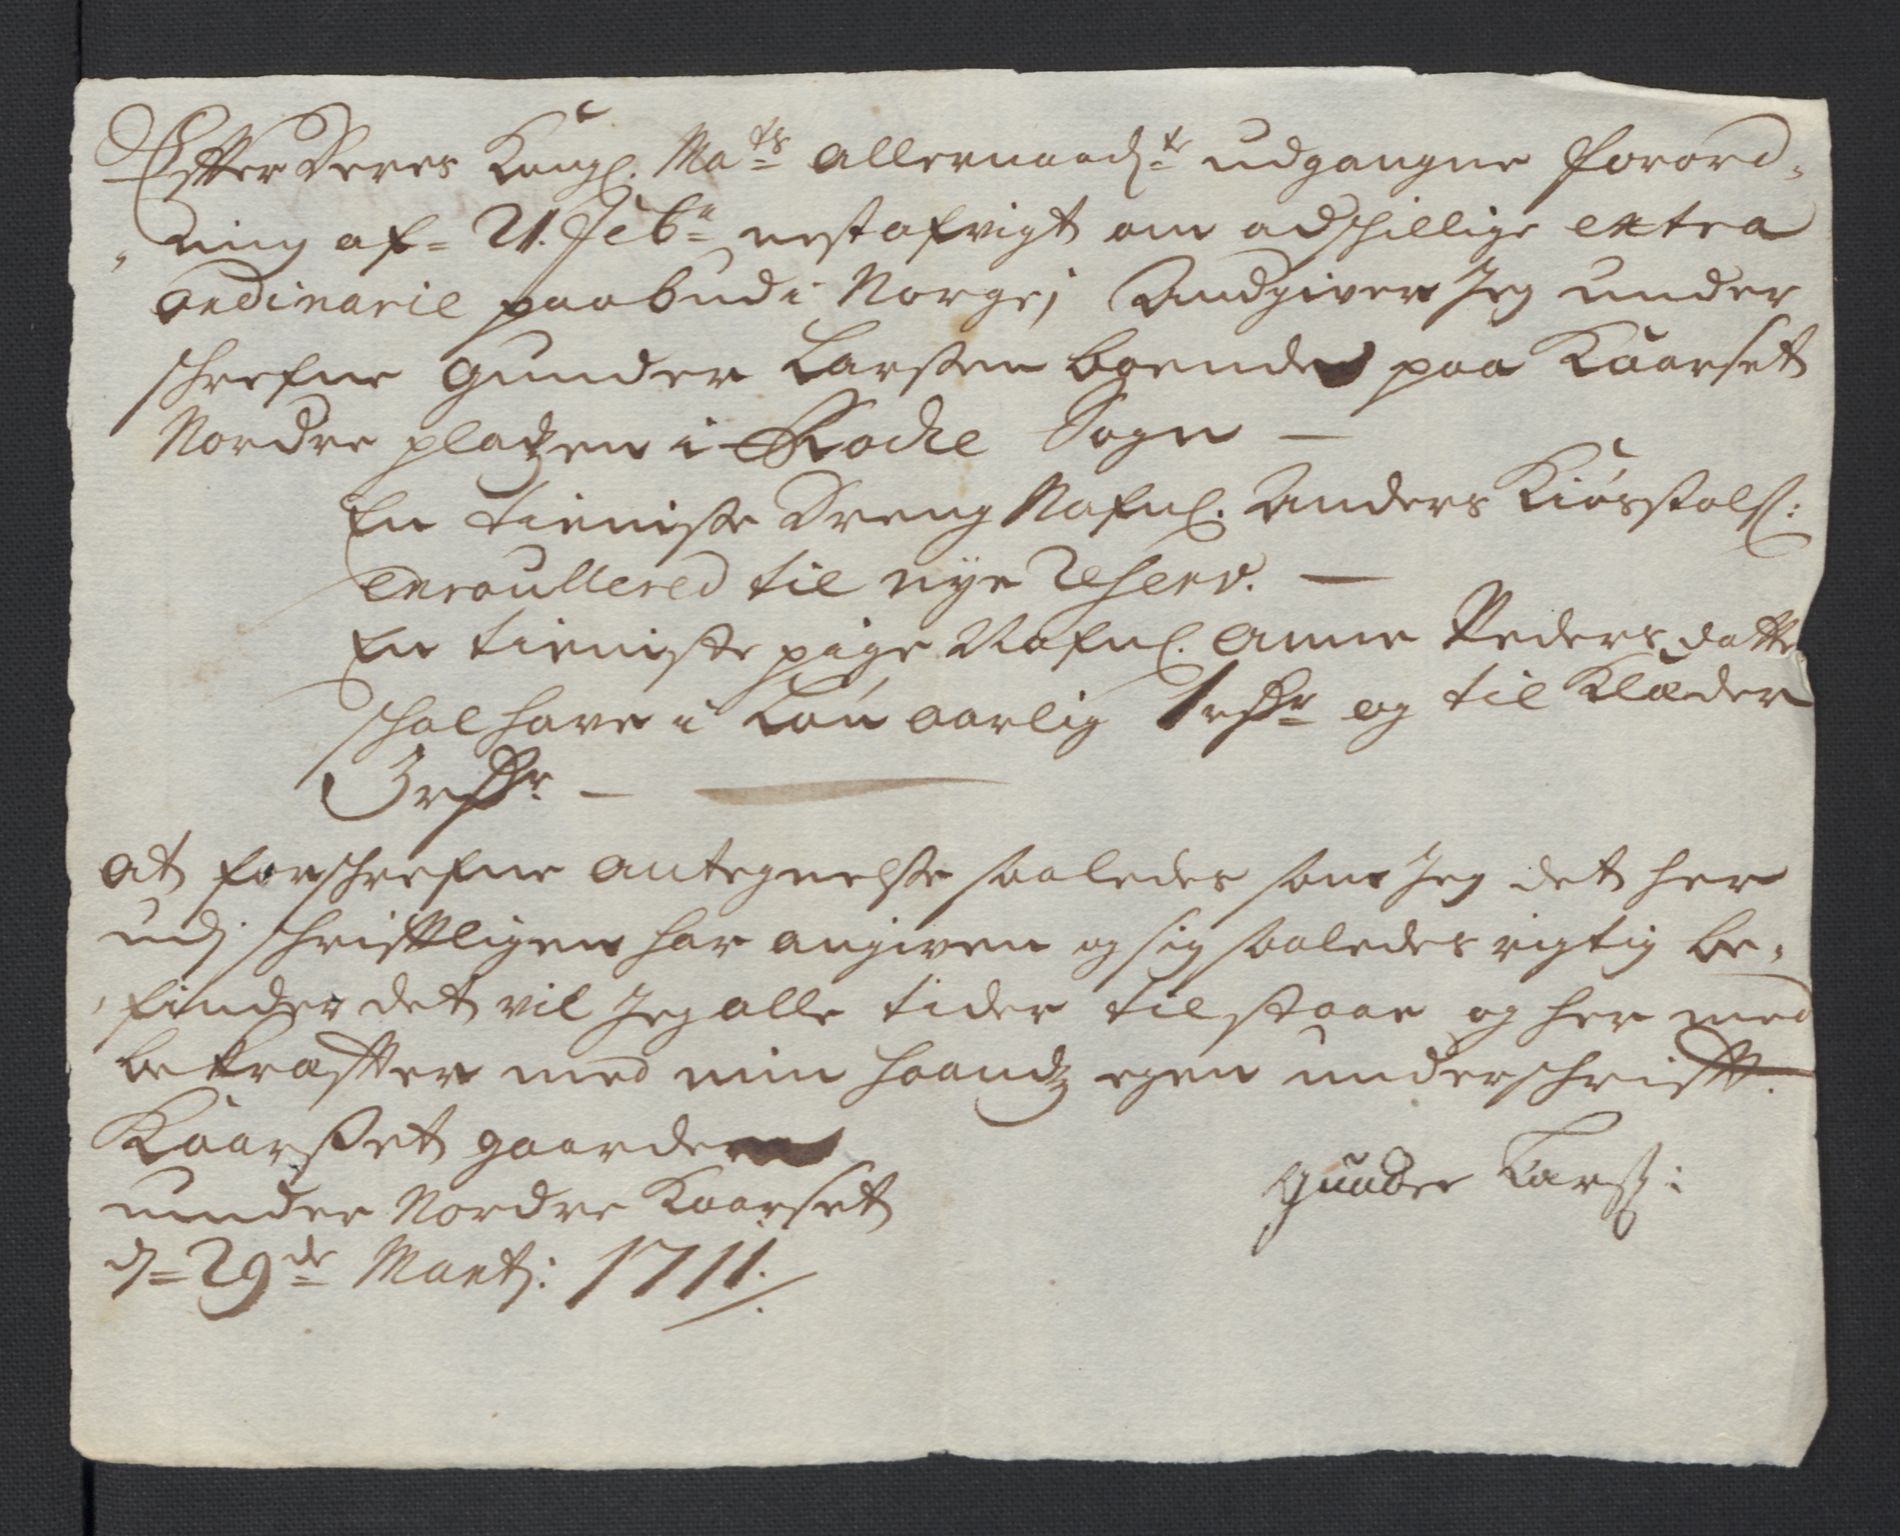 Effter Deres Kongl. Ma^ts allernaad^te udgangne forord,
,ning af 21. Feb^r nest afvigt om adschillige extra
ordinarie paabud i Norge; Andgiver Jeg under
schrefne Gunder Larssen boende paa Kaarset
Nordre platzen i Rocke Sogn —
En tieniste Dreng Nafnl. Anders Kiøstols:
Enroullered til nye Reserv. —
En tieniste pige Nafnl. Anne Pedersdatte
schal have i Løn aarlig 1 rdr og til Klæder
3 rdr —
At forschrefne antegnelse saaledes som Jeg det her
udj schrifftligen har angiven og sig saaledes rigtig be,
,finder det vil Jeg alle tider tilstaae og her med
bekræffter med min haandz egen underschrifft.
Kaarsset gaarden
under Nordre Kaarset
d= 29^de Martj: 1711.
Gunder Larss: